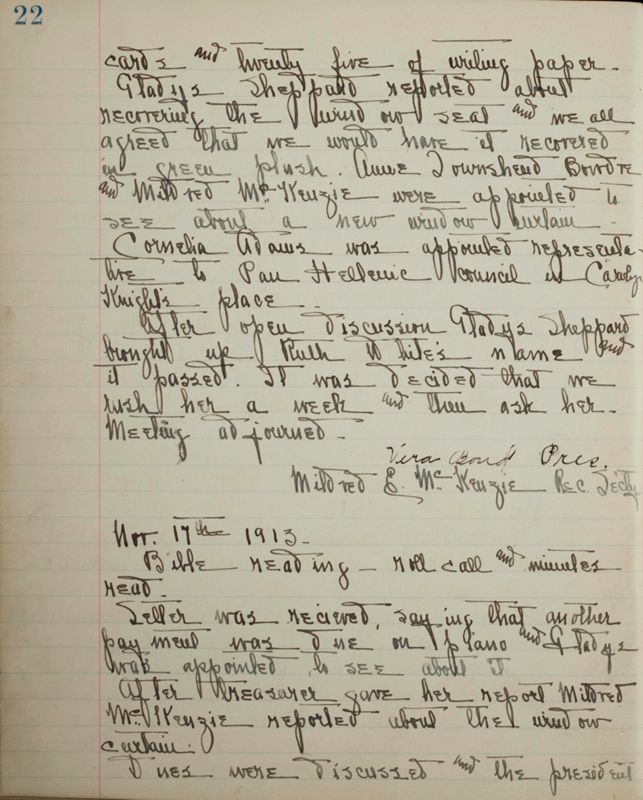 22
cards and twenty five of writing paper.
Gladys Sheppard reported about
recovering the window seat and we all
agreed that we would have it recovered
in green plush. Anne Townshend Bowdre
and Mildred McKenzie were appointed to
see about a new window curtain.
Cornelia Adams was appointed representa-
tive to Pan Hellenic Council in Carolyn
Knight's place.
After open discussion Gladys Sheppard
brought up Ruth White's name and
it passed. It was decided that we
rush her a week and then ask her.
Meeting adjourned.
Vera Bond Pres.
Mildred E. McKenzie Rec. Sec'ty
Nov. 17th 1913.
Bible reading - roll call and minutes
read.
Letter was recieved, saying that another
payment was due on piano and Gladys
was appointed to see about it
After Treasurer gave her report Mildred
McKenzie reported about the window
curtain.
Dues were discussed and the president